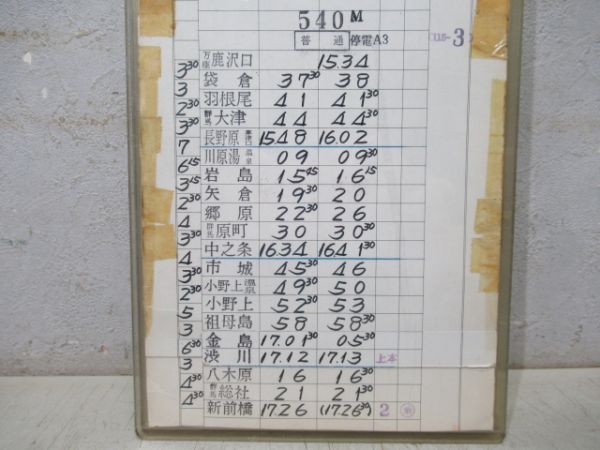 540M
普通 停電A3
3
万座鹿沢口 15.34
3 30 袋倉 37 30 38
3 羽根尾 41 41 30
2 30 群馬大津 44 44 30
3 30 長野原 15.48 16.02
7 川原湯温泉 09 09 30
6 15 岩島 15 45 16 15
3 15 矢倉 19 30 20
2 30 郷原 22 30 26
4 群馬原町 30 30 30
3 30 中之条 16.34 16.41 30
4 市城 45 30 46
3 30 小野上温泉 49 30 50
2 30 小野上 52 30 53
5 祖母島 58 58 30
3 金島 17.01 30 05 30
6 30 渋川 17.12 17.13 上本
3 八木原 16 16 30
4 30 群馬総社 21 21 30
4 30 新前橋 17.26 (17.26 30) 2